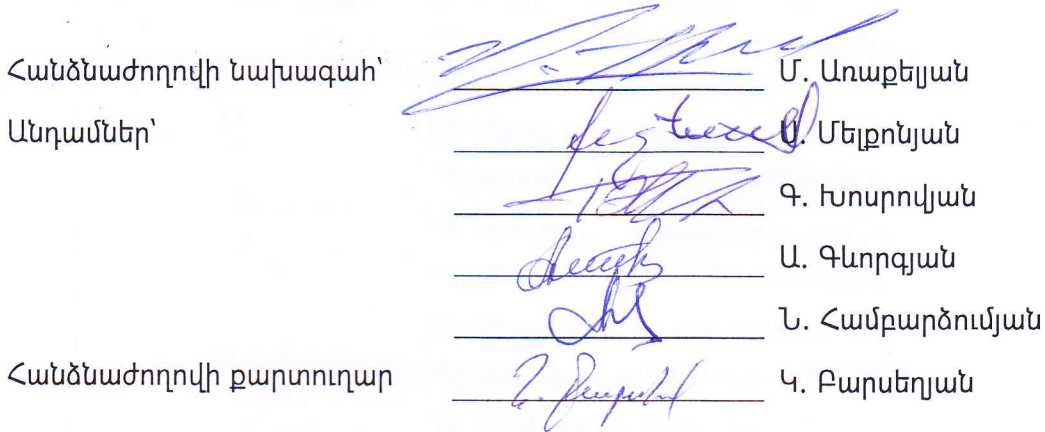 Հանձնաժողովի նախագահ՝ Մ. Առաքելյան
Անդամներ՝ Մելքոնյան
Գ. Խոսրովյան
Ա. Գևորգյան
Ն. Համբարձումյան
Հանձնաժողովի քարտուղար Կ. Բարսեղյան